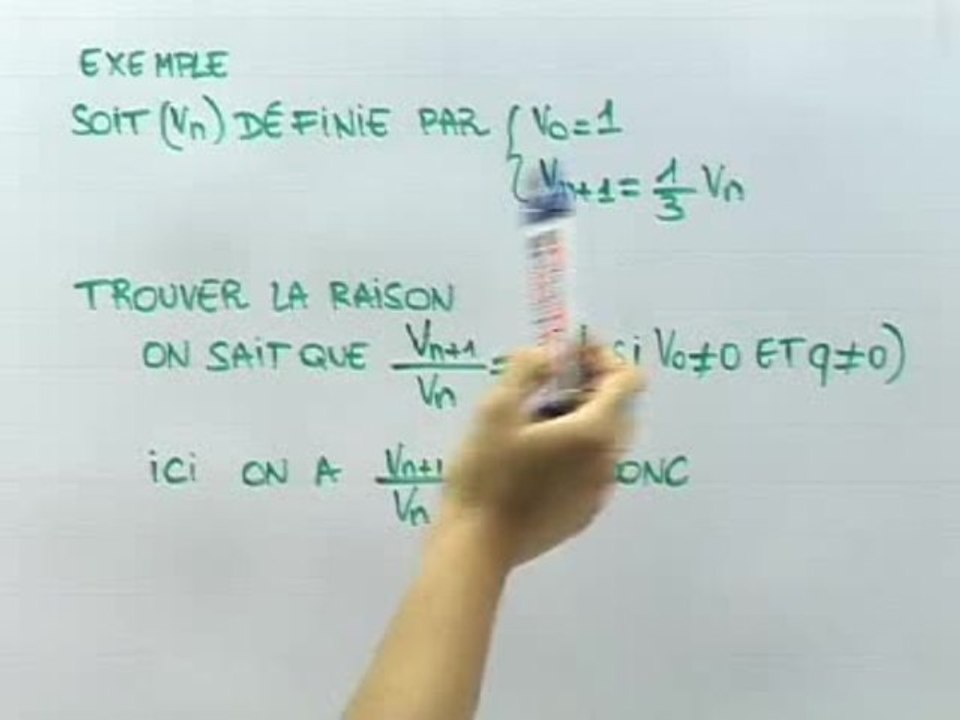 EXEMPLE
SOIT (Vn) DÉFINIE PAR { V0 = 1
Vn+1 = 1/3 Vn
TROUVER LA RAISON
ON SAIT QUE Vn+1/Vn = si V0≠0 ET q≠0)
ici ON A Vn+1/Vn